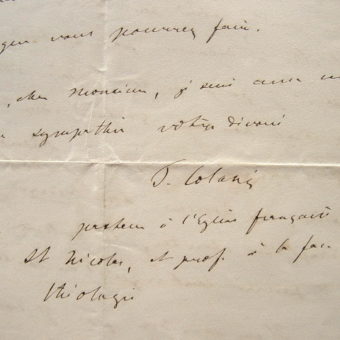 que vous pourrez faire.
, cher Monsieur, je suis avec u
sympathie votre dévoué
T. Colani
pasteur à l'Eglise française
St Nicolas, et prof. à la fac
théologie